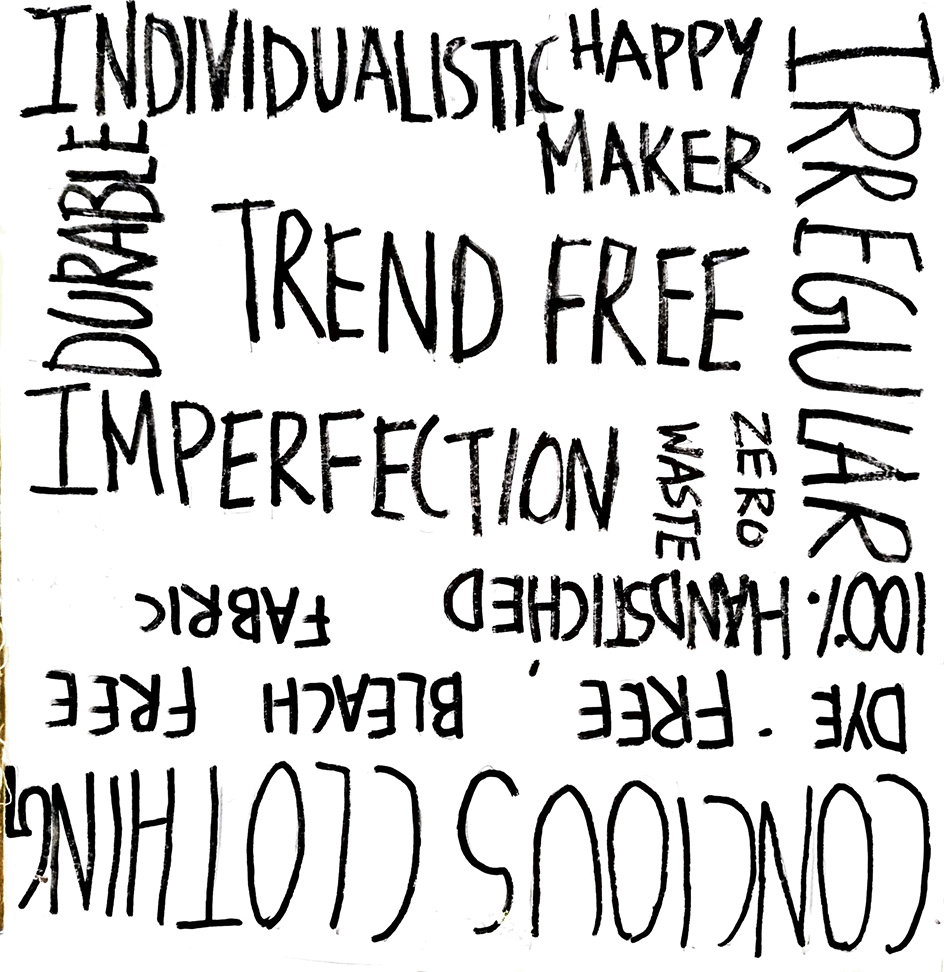 INDIVIDUALISTIC
HAPPY
MAKER
IRREGULAR
DURABLE
TREND FREE
IMPERFECTION
ZERO
WASTE
CONCIOUS CLOTHING
DYE-FREE, BLEACH FREE
100% HANDSTICHED FABRIC